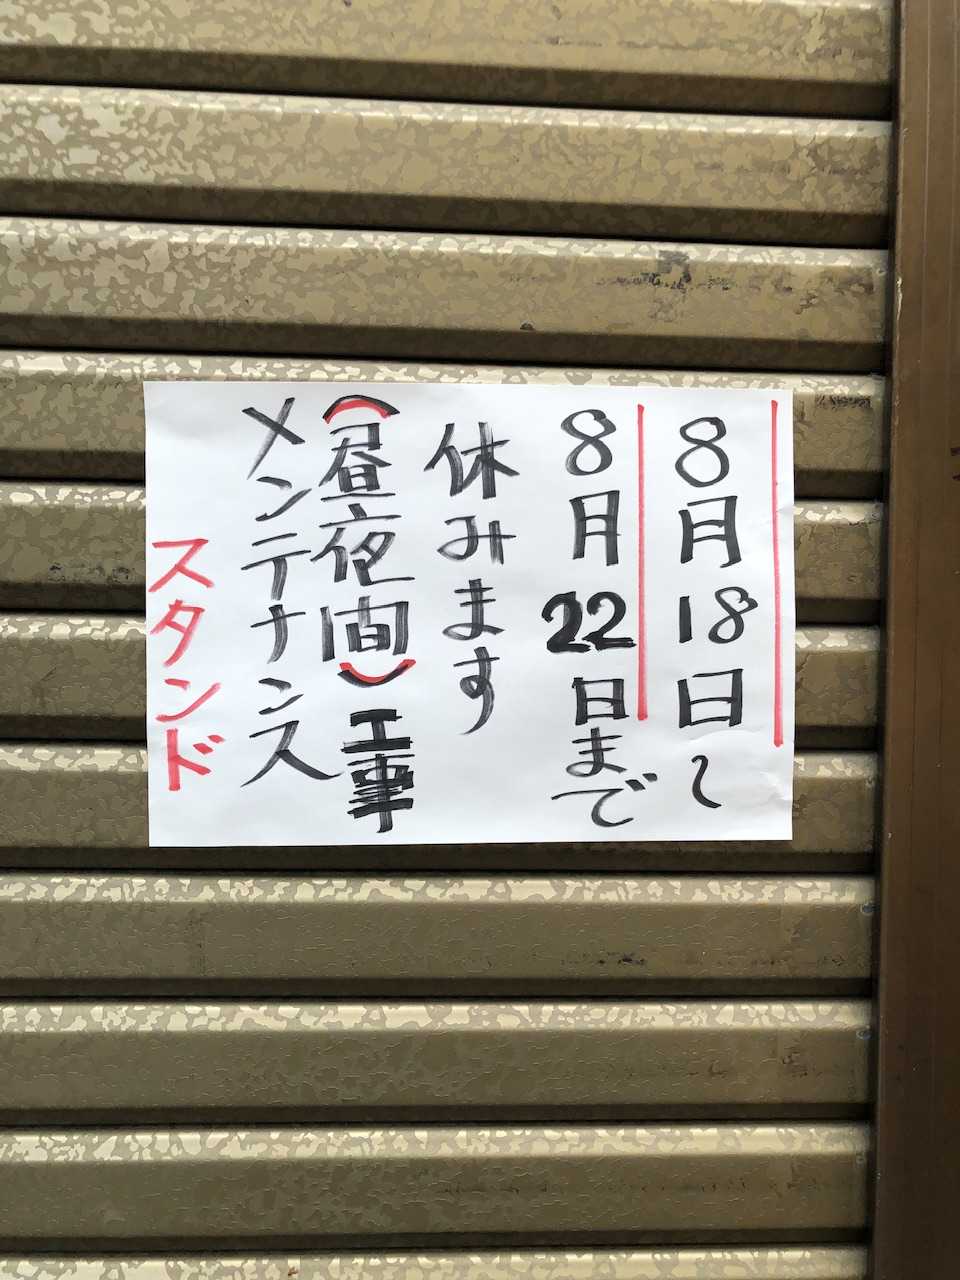 8月18日~
8月22日まで
休みます
(昼夜間)工事
メンテナンス
スタンド